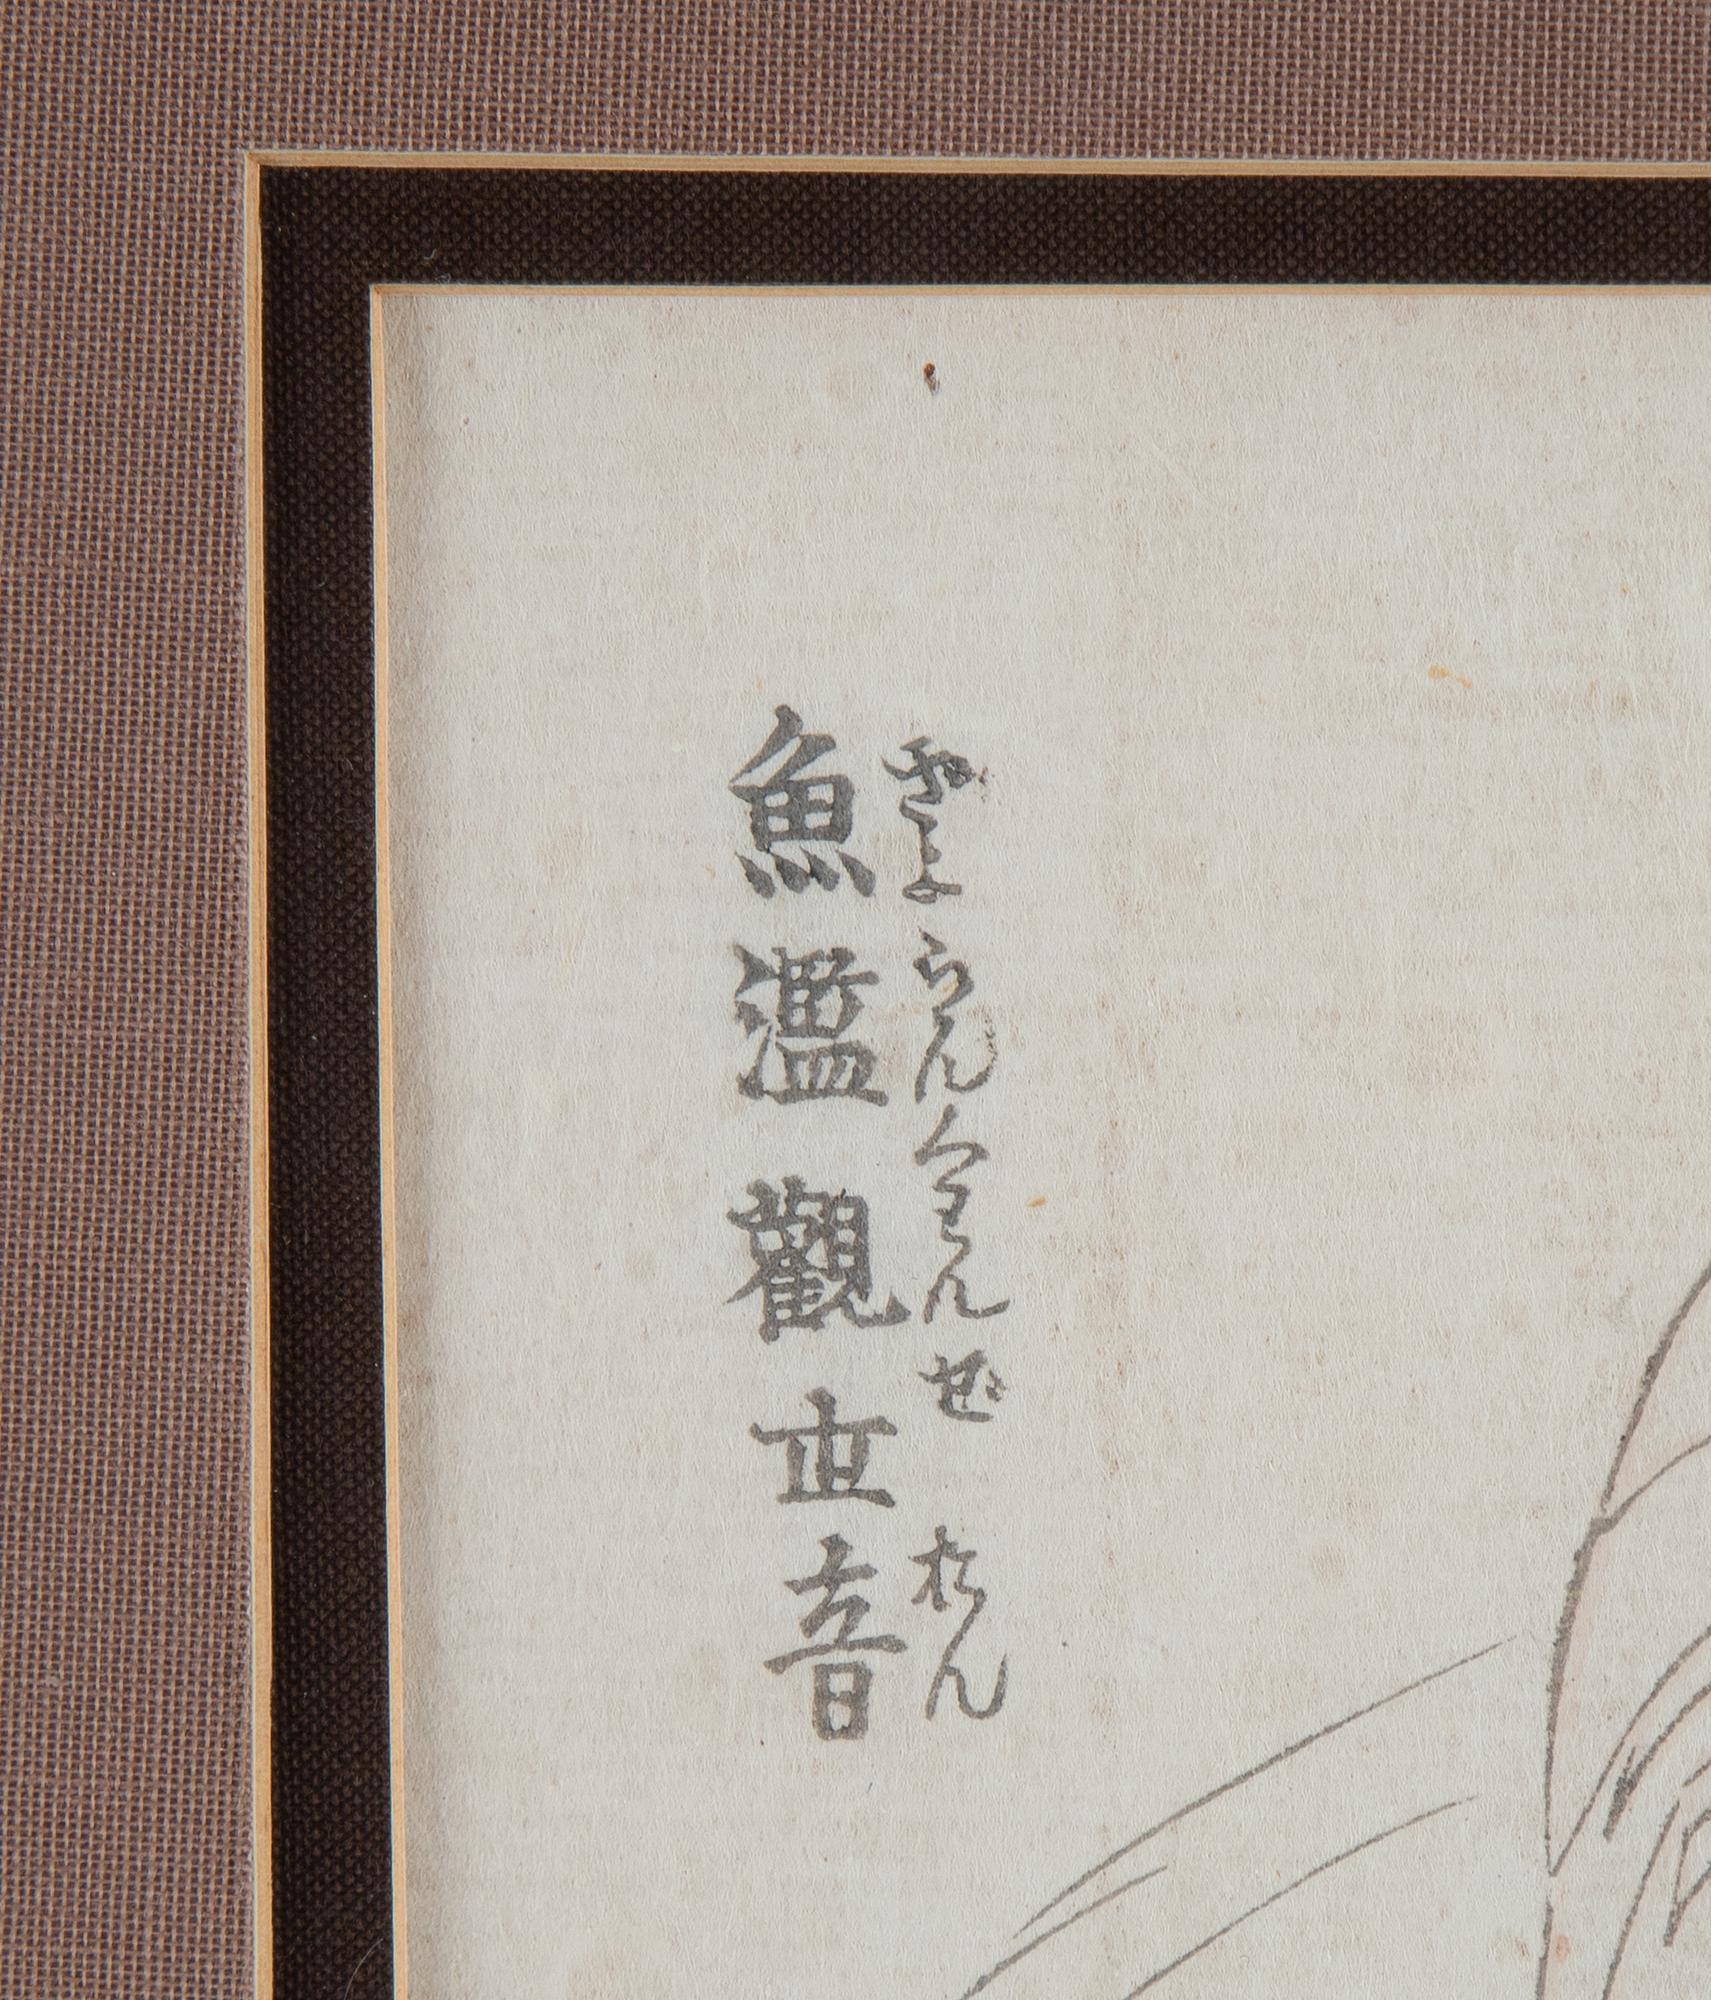 ぎよらんくわんぜおん
魚濫觀世音